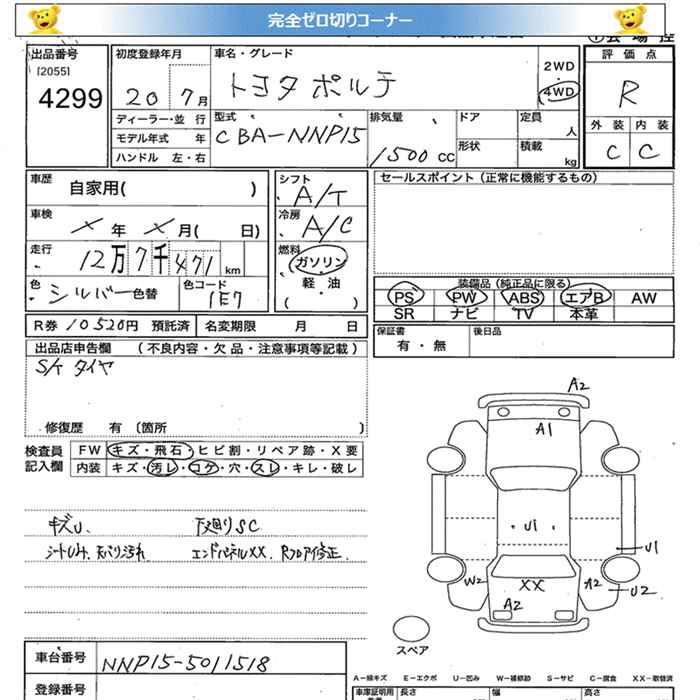 完全ゼロ切りコーナー
出品番号
[2055]
4299
初度登録年月
20 7月
車名・グレード
トヨタ ポルテ
2WD
・
4WD
評価点
R
外装 内装
C C
ディーラー・並行
モデル年式 年
ハンドル 左・右
型式
CBA-NNP15
排気量
1500 CC
ドア
形状
定員
人
積載
kg
車歴
自家用( )
車検
× 年 × 月( 日)
走行
12万7千471 km
色
シルバー 色替
色コード
1E7
シフト
A/T
冷房
A/C
燃料
ガソリン
軽・油
( )
セールスポイント(正常に機能するもの)
装備品(純正品に限る)
PS PW ABS エアB AW
SR ナビ TV 本革
R券 10520円 預託済 名変期限 月 日
保証書
有・無
後日品
出品店申告欄 (不良内容・欠品・注意事項等記載)
S/K タイヤ
修復歴 有 〔箇所 〕
検査員
記入欄
FW キズ・飛石・ヒビ割・リペア跡・X要
内装 キズ・汚レ・コゲ・穴・スレ・キレ・破レ
キズU、 下廻りSC
エンドパネルXX、Rフロア修正
A2
A1
U1
U1
W2
XX
A2
A2
U2
スペア
車台番号
NNP15-5011518
登録番号
A-線キズ E-エクボ U-凹み W-補修跡 S-サビ C-腐食 XX-取替済
車庫証明用 長さ 幅 高さ